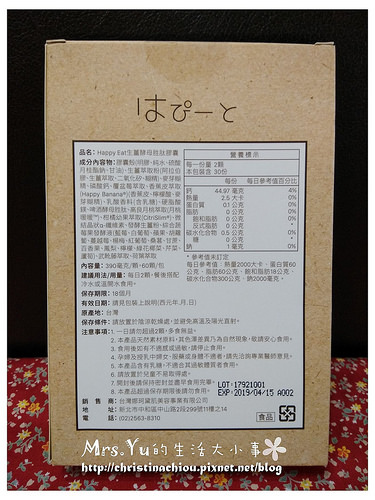 はぴーと
品名：Happy Eat生薑酵母胜肽膠囊
成分內容物：膠囊殼(明膠、純水、硫酸
月桂酯鈉、甘油)、生薑萃取粉(阿拉伯
膠、生薑萃取、二氧化矽、糊精)、麥芽糊
精、磷酸鈣、覆盆莓萃取、香蕉皮萃取
(Happy Banana®)(香蕉皮、檸檬酸、麥
芽糊精)、乳酸香料(含乳糖)、硬脂酸
鎂、啤酒酵母胜肽、高良薑萃取
柑橘幼果萃取(CitriSlim®)、微
結晶狀α-纖維素、發酵生薑粉、綜合蔬
果發酵液(藍莓、白葡萄、蘋果、胡蘿
蔔、蔓越莓、楊梅、紅葡萄、桑葚、甘蔗、
百香果、鳳梨、檸檬、綠花椰菜、芹菜、
蘆筍)、武靴藤萃取、荷葉萃取
內容量：390毫克/顆，60顆/包
建議用法/用量：每日2顆，餐後搭配
冷水或溫開水食用。
保存期限：18個月
有效日期：請見包裝上說明(西元年.月.日)
原產地：台灣
保存條件：請放置於陰涼乾燥處，並避免高溫及陽光直射。
注意事項：1. 一日請勿超過2顆，多食無益。
2. 本產品天然素材原料，其色澤差異乃為自然現象，敬請安心食用。
3. 食用後如有不適感或過敏，請停止食用。
4. 孕婦及授乳中婦女、服藥或身體不適者，請先洽詢專業醫師意見。
5. 本產品含有乳糖，不適合其過敏體質者食用。
6. 請放置於兒童不易取得處。
7. 開封後請保持密封並盡早食用完畢。
8. 本產品超過保存期限後請勿食用。
營養標示
每一份量 2顆
本包裝含 30份
每份 每日參考值百分比
鈣 44.97 毫克 4%
熱量 2.5 大卡 0%
蛋白質 0.1 公克 0%
脂肪 0 公克 0%
飽和脂肪 0 公克 0%
反式脂肪 0 公克 *
碳水化合物 0.5 公克 0%
糖 0 公克 *
鈉 1 毫克 0%
* 參考值未訂定
* 每日參考值：熱量2000大卡、蛋白質60
公克、脂肪60公克、飽和脂肪18公克、
碳水化合物300公克、鈉2000毫克。
LOT:17921001
EXP:2019/04/15 A002
銷售商：台灣娜珂黛肌美容事業有限公司
地址：新北市中和區中山路2段299號11樓之14
電話：(02)2563-8310
食品
Mrs.Yu的生活大小事
http://christinachiou.pixnet.net/blog